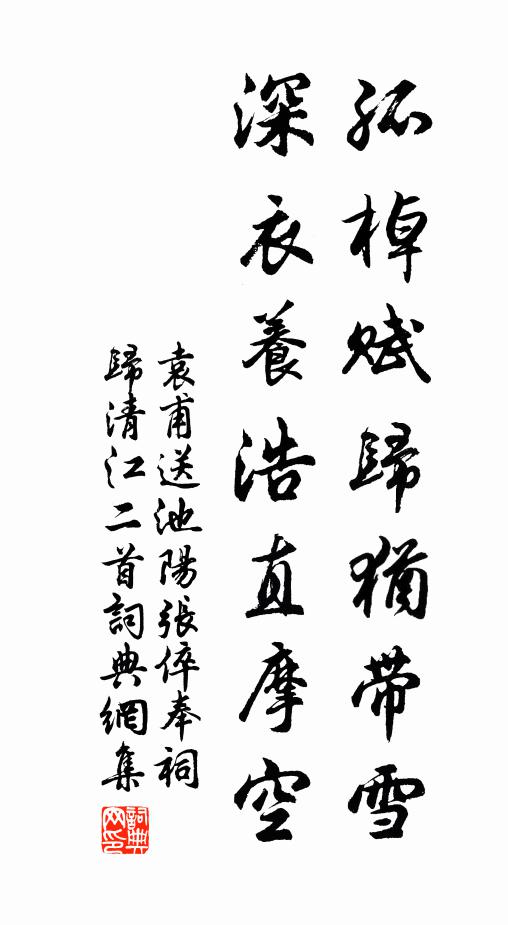 孤棹賦歸猶帶雪
深衣養浩直摩空
袁甫送池陽張倅奉祠
歸清江二首詞典網集
詞典
网印